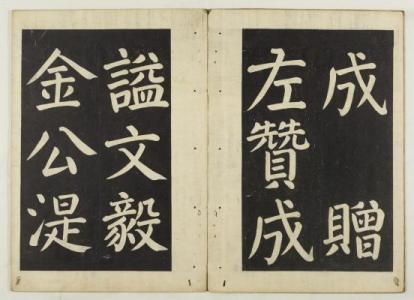 成 贈
左贊成
謚文毅
金公湜